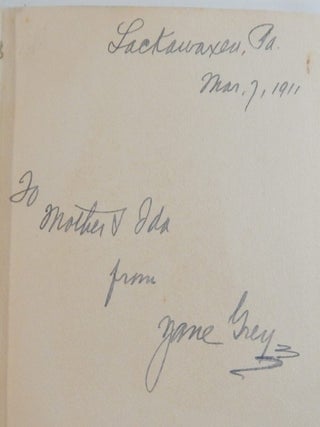 Lackawaxen, Pa.
Mar. 7, 1911
To
Mother & Ida
from
Zane Grey